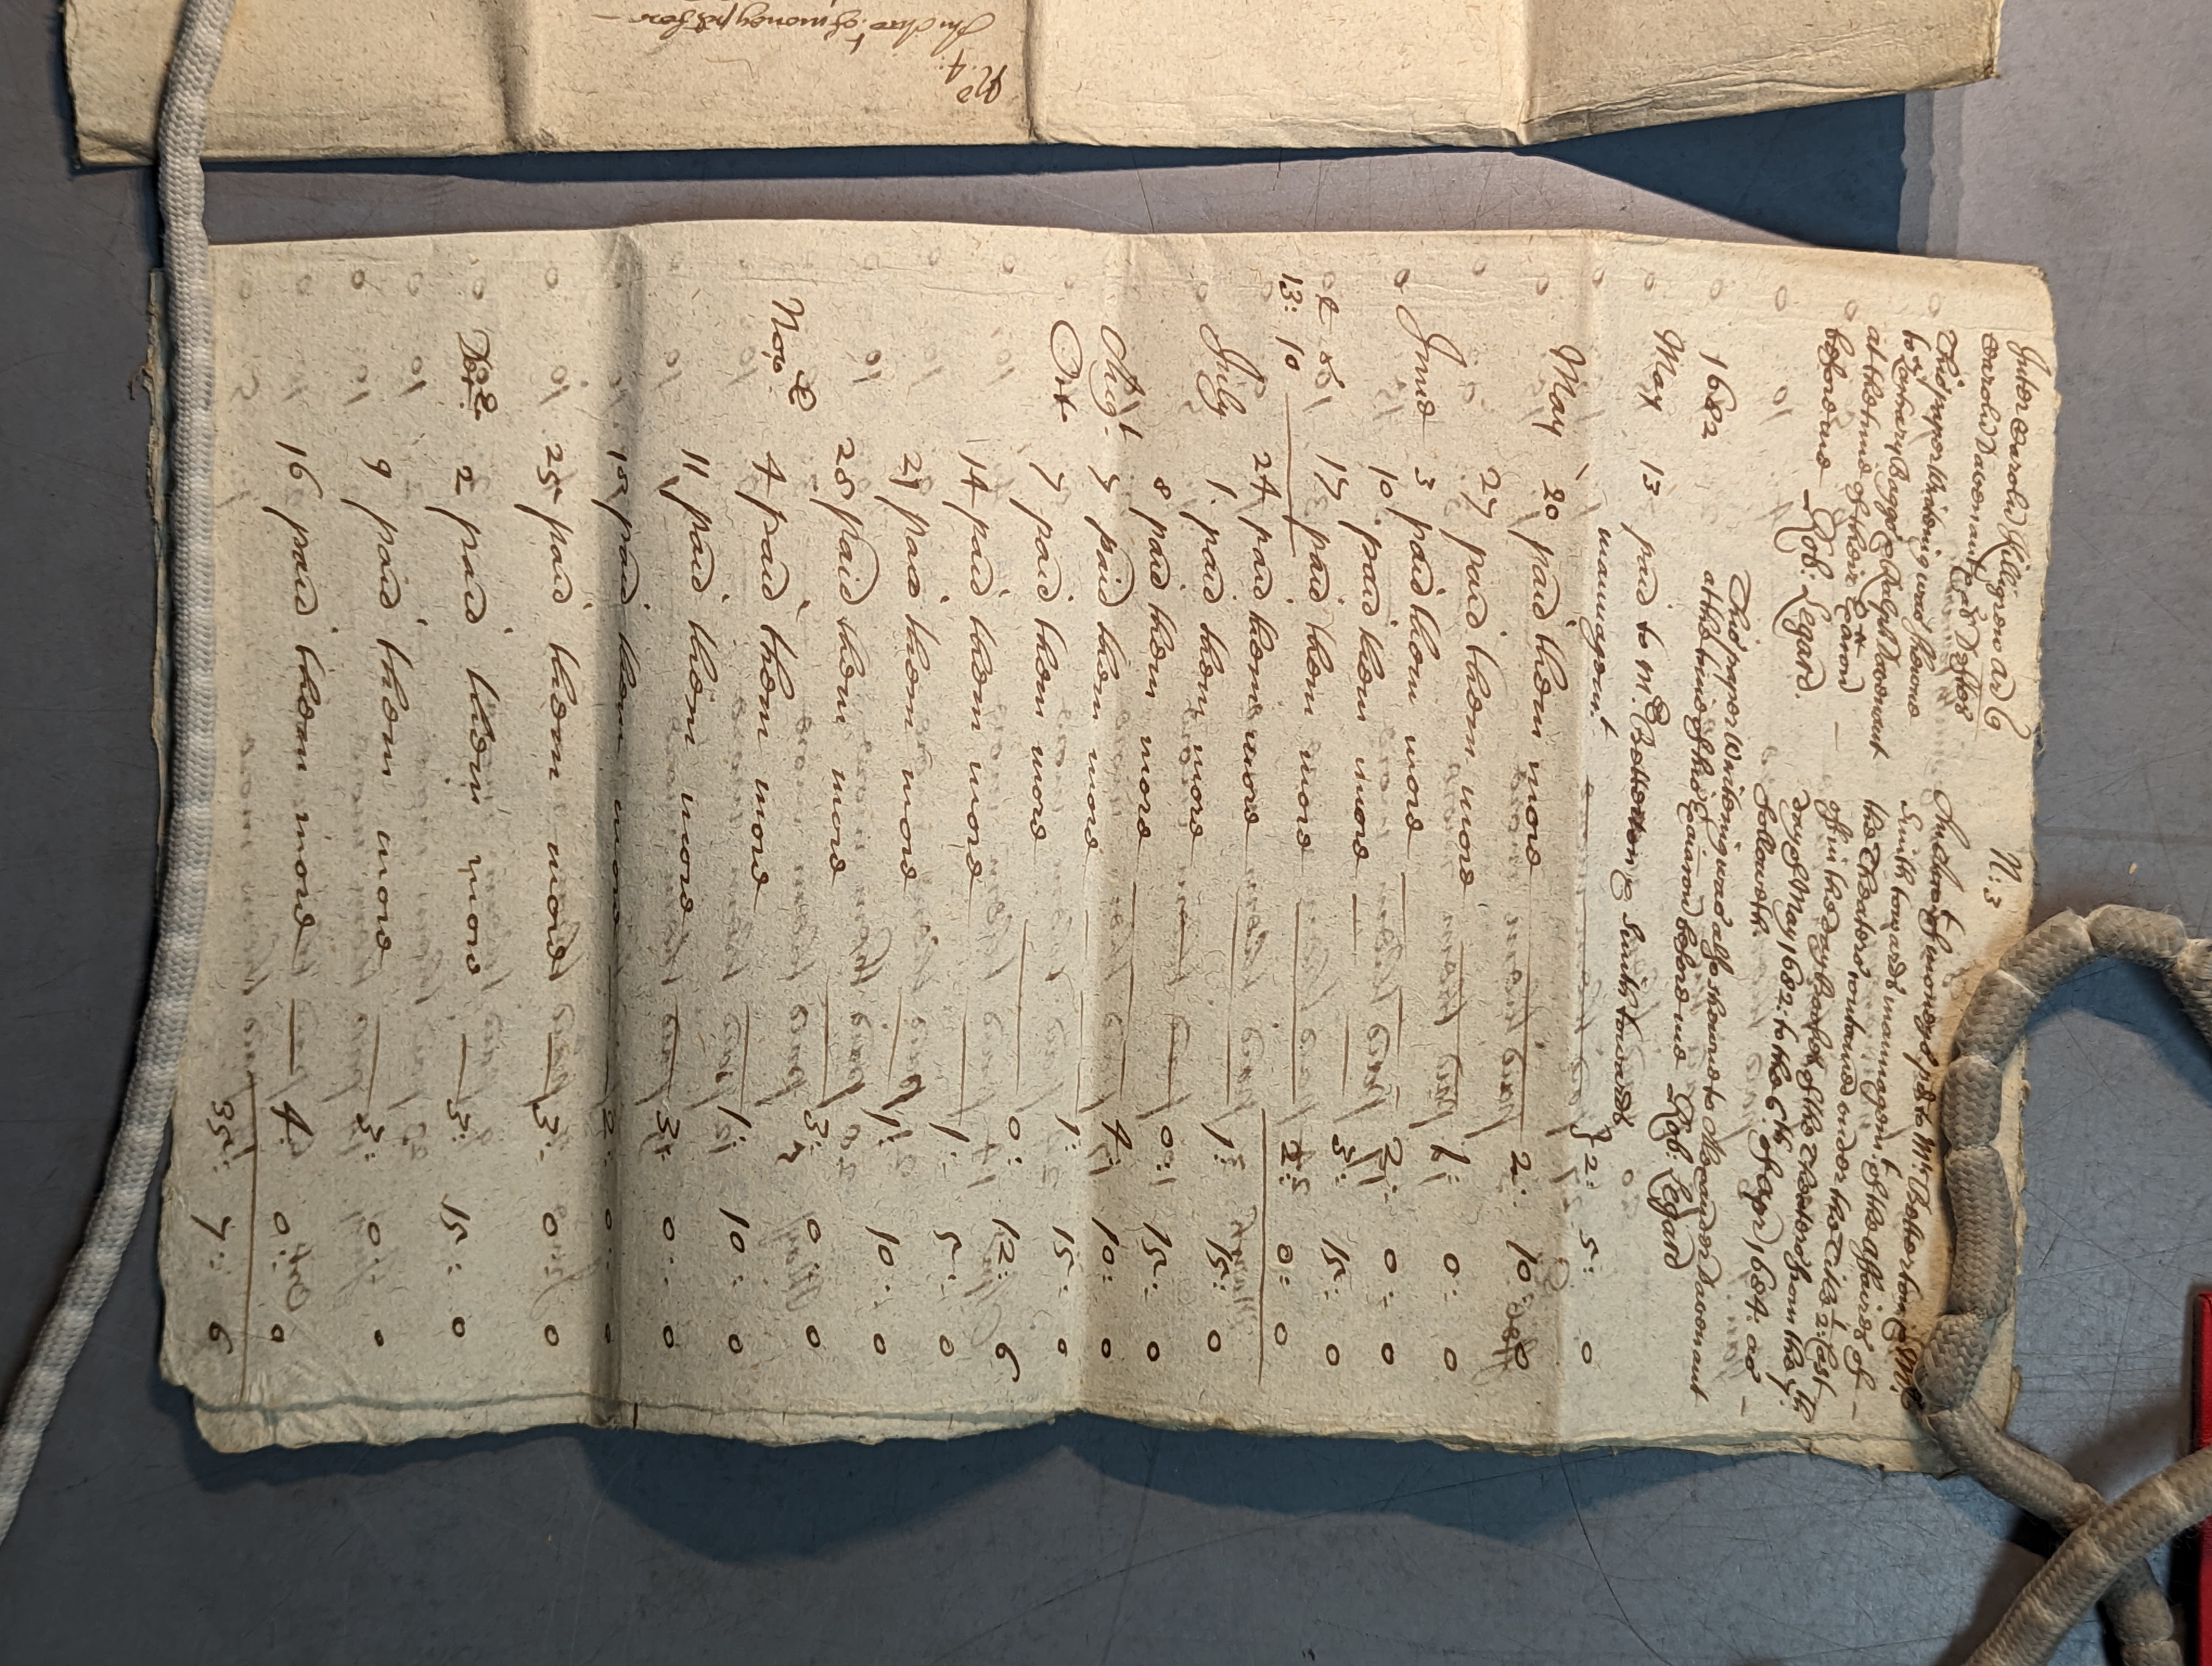 N: 3
Inter Carolu Killigrew ar &
Carolu Davenant et al Deftes
This paper Writeing was showne
to Zachary Baggs & Ralph Davenant
at the time of their Exãcon
before me Rob: Legard.
An Acct. of money pd to Mr. Betterton & Mr.
Smith towards mannagemt. of the affaires of
the Theatere contained under the Title 2: last
of in the day booke of the Theatere from the 9th
day of May 1682: to the 6th. of Apr 1684. as
followeth
This paper Writeing was also showne to Alexander Davenant
at the time of his Exãiacon before me Rob: Legard
1682
May 13 paid to Mr. Betterton & Smith towards
mannagemt. 2: 5: 0
May 20 paid them more 2: 10: 0
27 paid them more 1: 0: 0
June 3 paid them more 2: 0: 0
10 paid them more 3: 15: 0
17 paid them more 2: 0: 0
13: 10
24 paid them more 1: 15: 0
July 1 paid them more 0: 15: 0
8 paid them more 4: 10: 0
Augt 5 paid them more 1: 15: 0
Oct 7 paid them more 0: 12: 6
14 paid them more 1: 5: 0
21 paid them more 1: 10: 0
28 paid them more 3: 0: 0
Nov 4 paid them more 1: 10: 0
11 paid them more 3: 0: 0
18 paid them more 2: 0: 0
25 paid them more 3: 0: 0
Dec 2 paid them more 3: 15: 0
9 paid them more 3: 0: 0
16 paid them more 4: 0: 0
35: 7: 6
No 4
An Acct. of money pd for